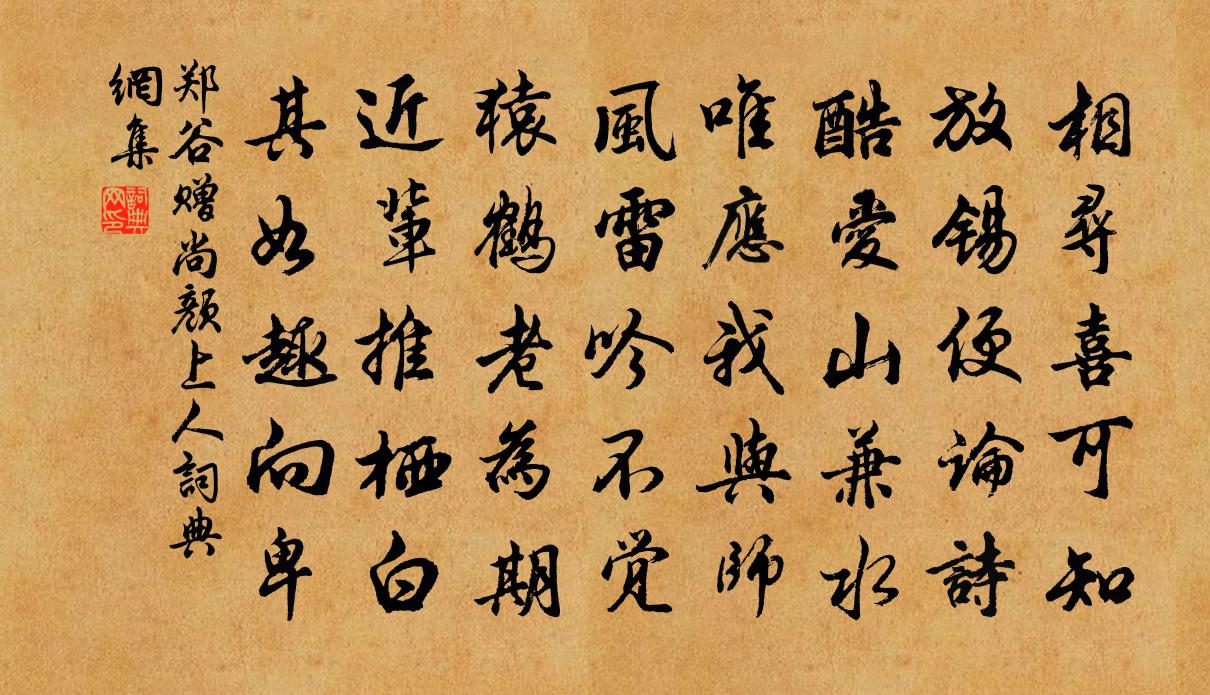 相尋喜可知
放锡便論詩
酷愛山兼水
唯應我與師
風雷吟不觉
猿鶴老為期
近輩推栖白
其如趣向卑
郑谷赠尚颜上人詞典
網集
詞典
网印